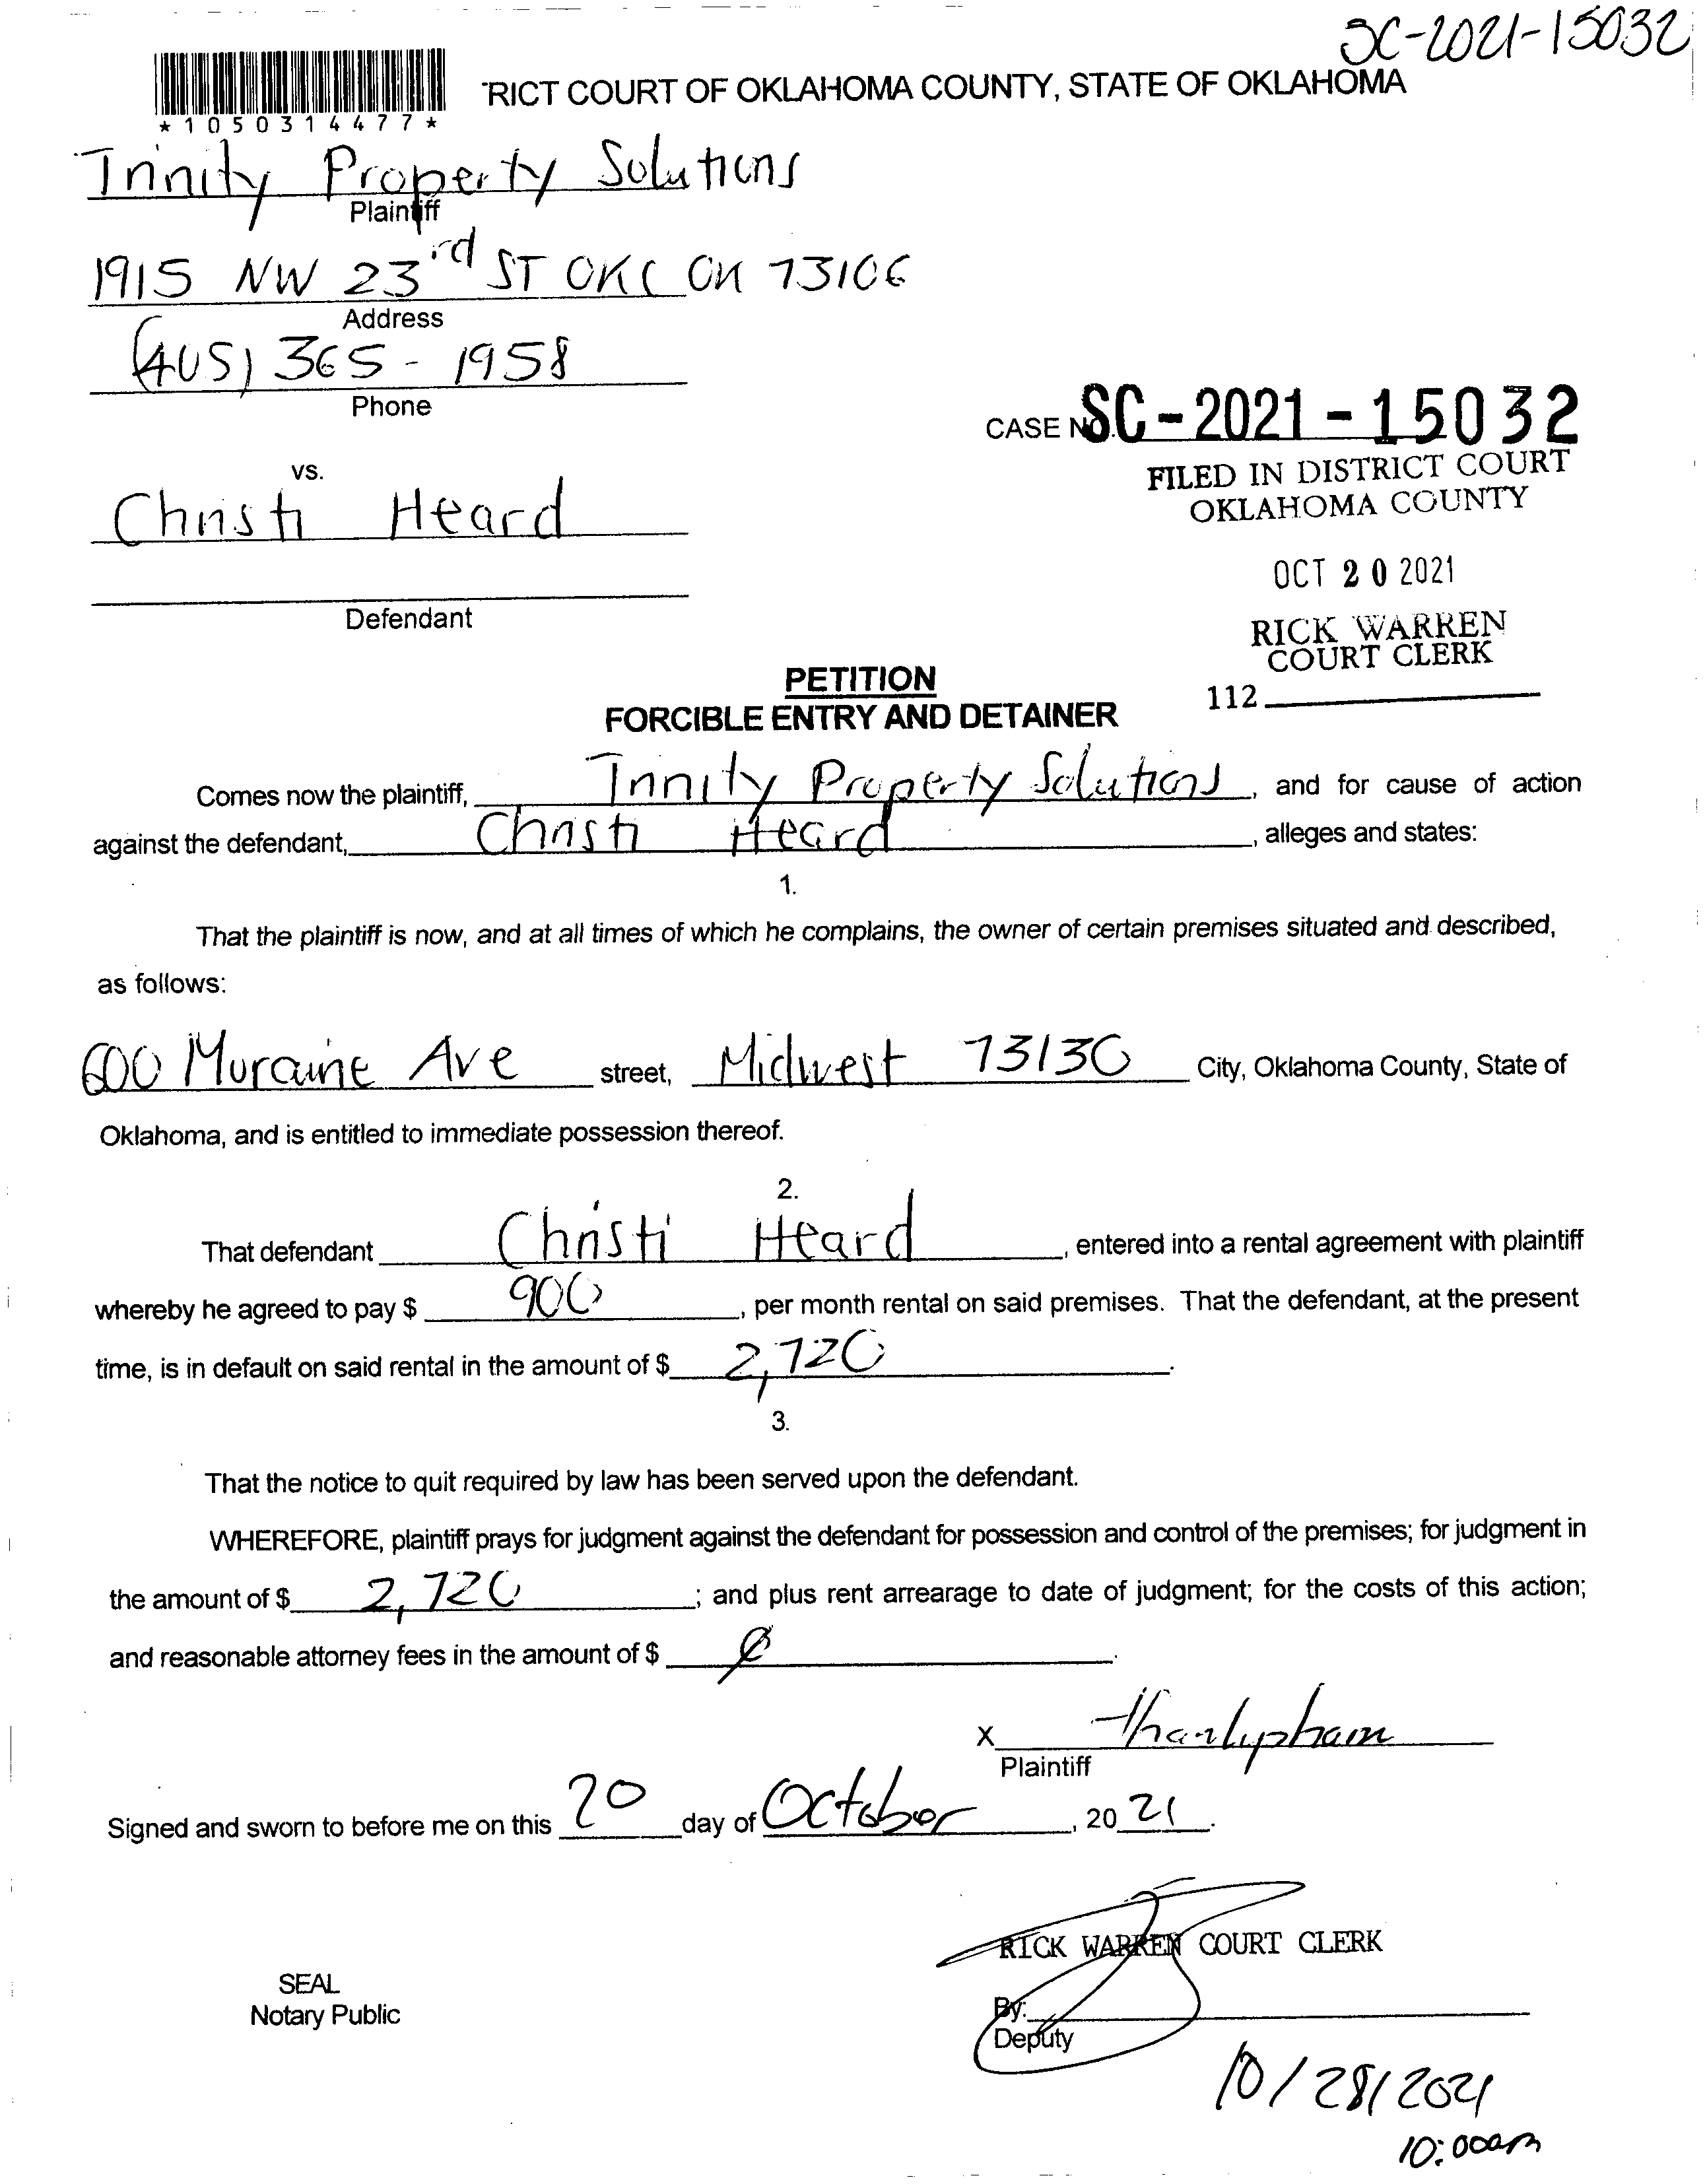 SC-2021-15032
RICT COURT OF OKLAHOMA COUNTY, STATE OF OKLAHOMA
*1050314477*
Trinity Property Solutions
Plaintiff
1915 NW 23rd ST OKC OK 73106
Address
(405) 365-1958
Phone
CASE NO. SC-2021-15032
FILED IN DISTRICT COURT
OKLAHOMA COUNTY
vs.
Christi Heard
OCT 20 2021
Defendant
RICK WARREN
COURT CLERK
112
PETITION
FORCIBLE ENTRY AND DETAINER
Comes now the plaintiff, Trinity Property Solutions, and for cause of action
against the defendant, Christi Heard, alleges and states:
1.
That the plaintiff is now, and at all times of which he complains, the owner of certain premises situated and described,
as follows:
600 Moraine Ave street, Midwest 73130 City, Oklahoma County, State of
Oklahoma, and is entitled to immediate possession thereof.
2.
That defendant Christi Heard, entered into a rental agreement with plaintiff
whereby he agreed to pay $ 900, per month rental on said premises. That the defendant, at the present
time, is in default on said rental in the amount of $ 2,720.
3.
That the notice to quit required by law has been served upon the defendant.
WHEREFORE, plaintiff prays for judgment against the defendant for possession and control of the premises; for judgment in
the amount of $ 2,720; and plus rent arrearage to date of judgment; for the costs of this action;
and reasonable attorney fees in the amount of $ Ø.
X
Plaintiff
Signed and sworn to before me on this 20 day of October, 2021.
RICK WARREN COURT CLERK
SEAL
Notary Public
By:
Deputy
10/28/2021
10:00am